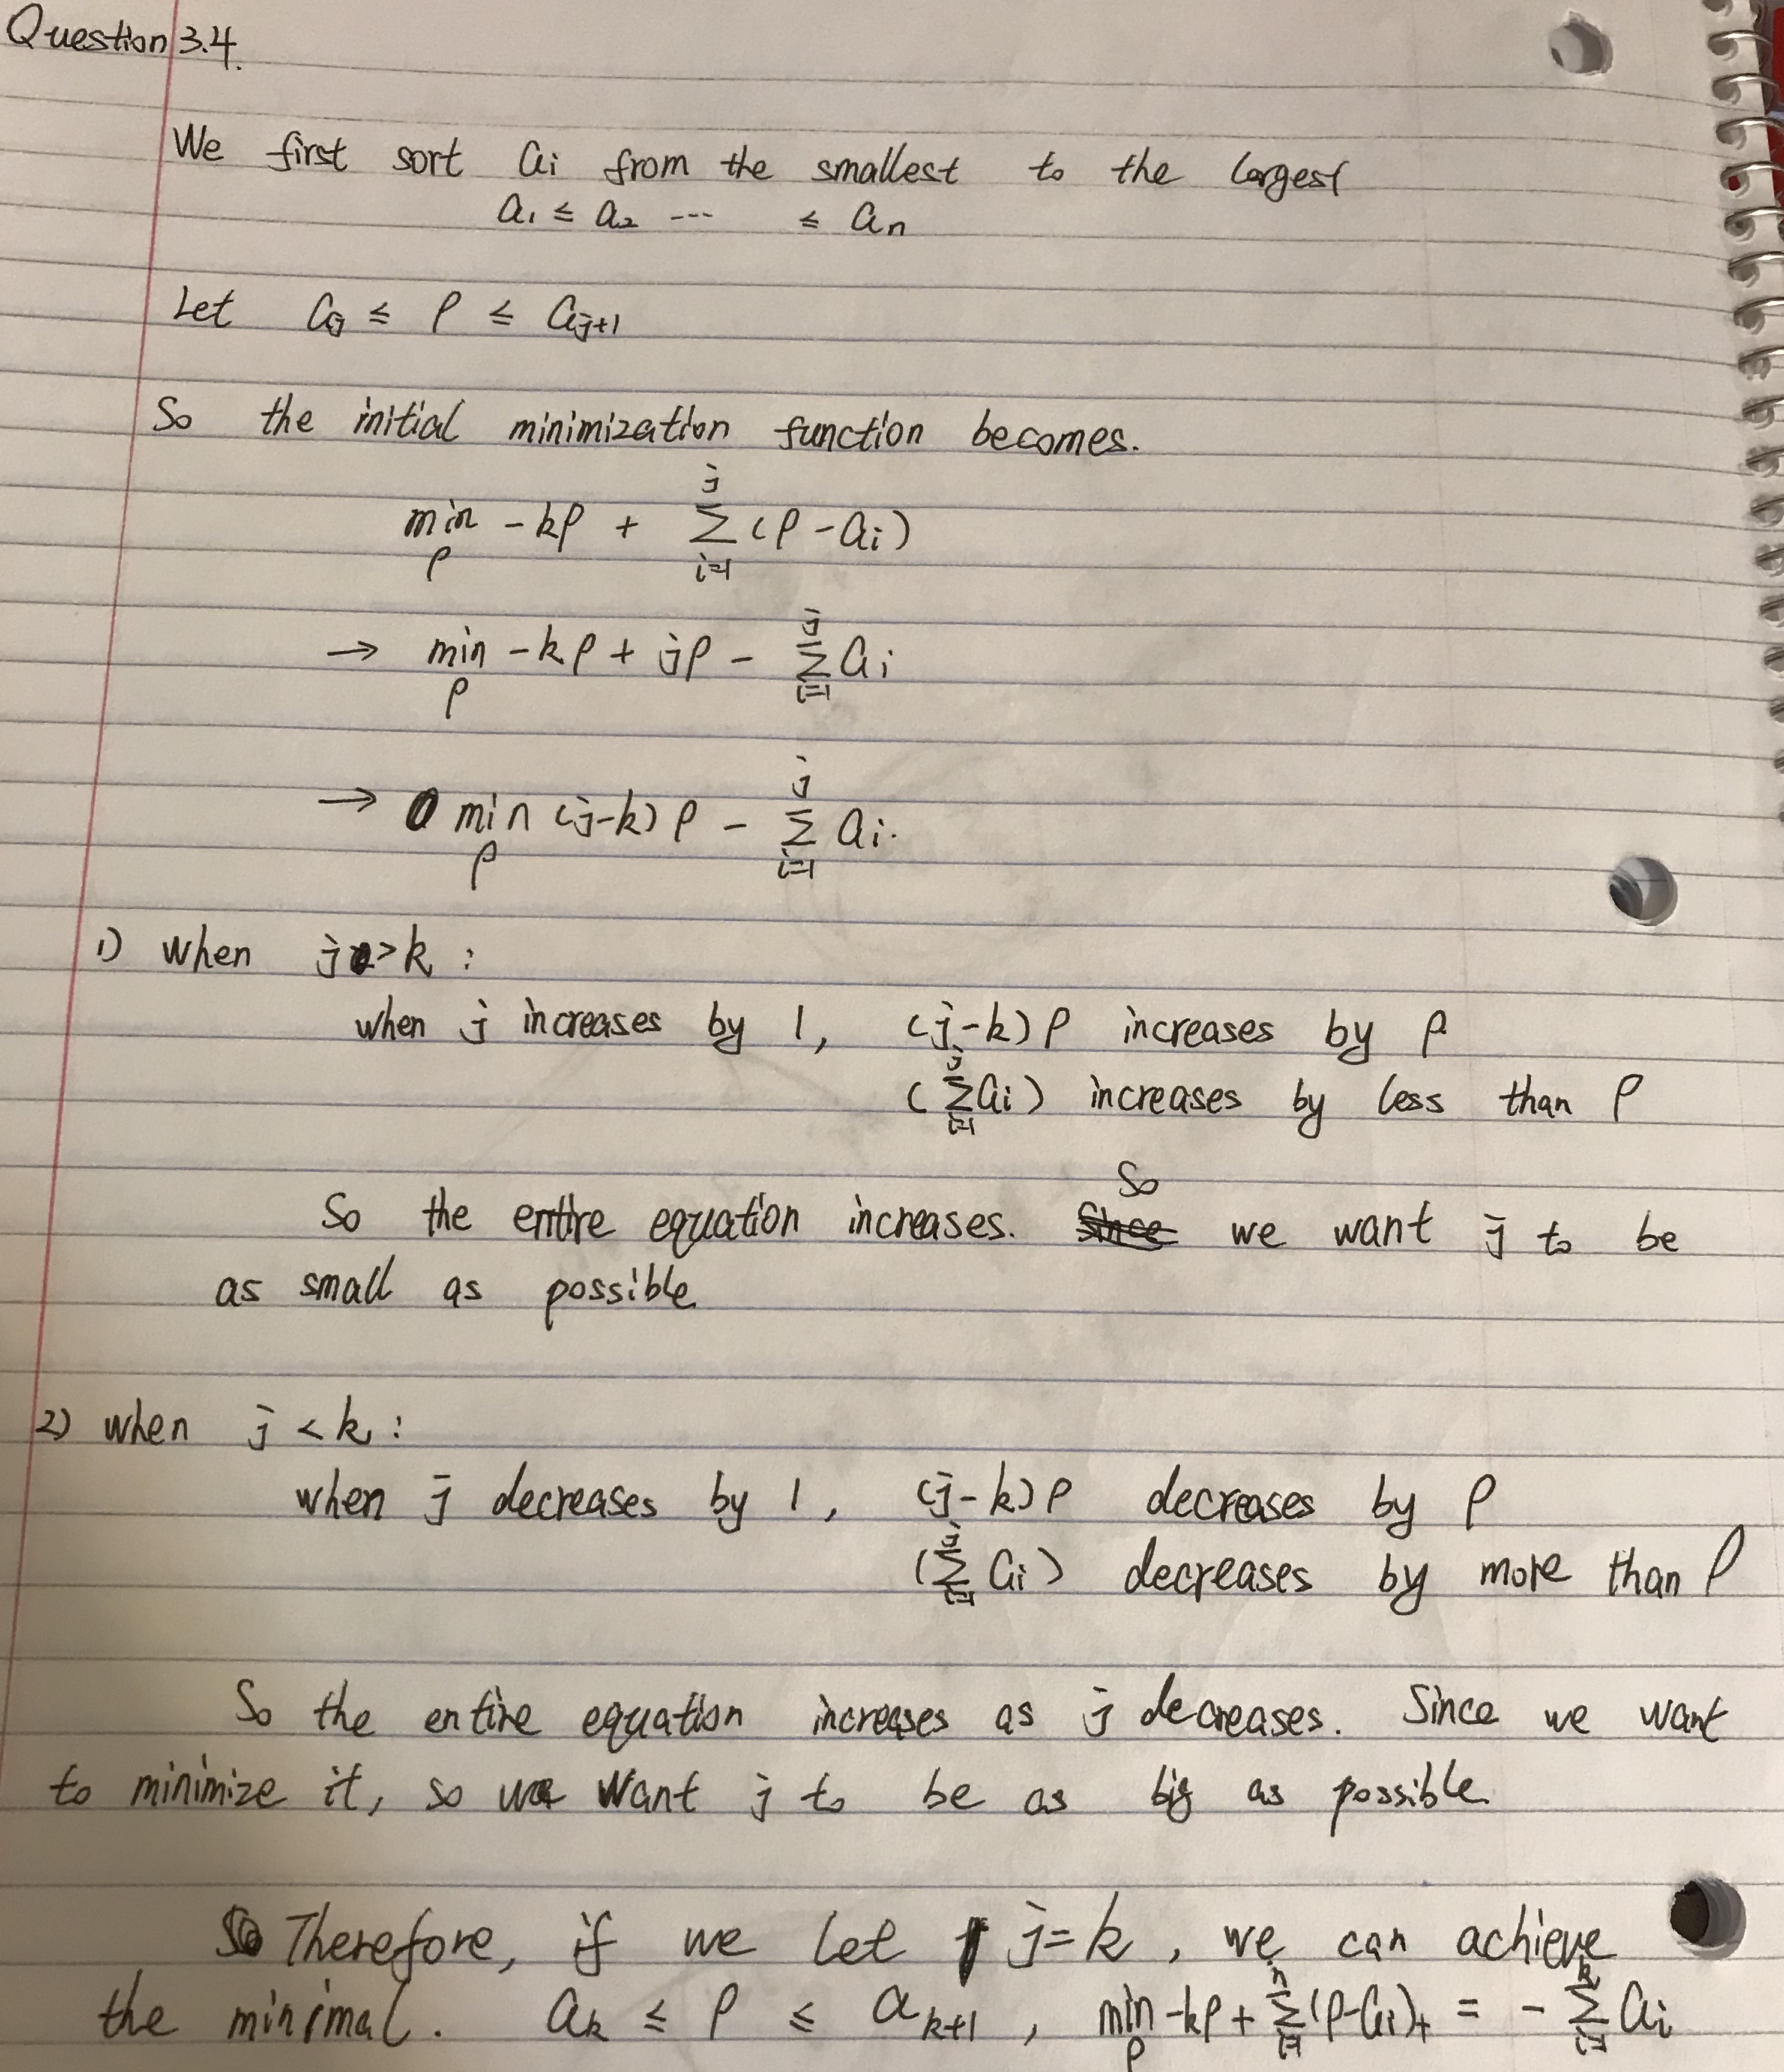 Question 3.4.
We first sort aᵢ from the smallest to the largest
a₁ ≤ a₂ --- ≤ aₙ
Let aⱼ ≤ ρ ≤ aⱼ₊₁
So the initial minimization function becomes.
min_ρ -kρ + Σ_{i=1}^{j} (ρ - aᵢ)
→ min_ρ -kρ + jρ - Σ_{i=1}^{j} aᵢ
→ min_ρ (j-k)ρ - Σ_{i=1}^{j} aᵢ.
1) when j > k :
when j increases by 1, (j-k)ρ increases by ρ
(Σ_{i=1}^{j} aᵢ) increases by less than ρ
So the entire equation increases. So we want j to be
as small as possible
2) when j < k :
when j decreases by 1, (j-k)ρ decreases by ρ
(Σ_{i=1}^{j} aᵢ) decreases by more than ρ
So the entire equation increases as j decreases. Since we want
to minimize it, so we want j to be as big as possible.
Therefore, if we let j = k, we can achieve
the minimal. aₖ ≤ ρ ≤ aₖ₊₁ , min_ρ -kρ + Σ_{i=1}^{n} (ρ-aᵢ)₊ = - Σ_{i=1}^{k} aᵢ